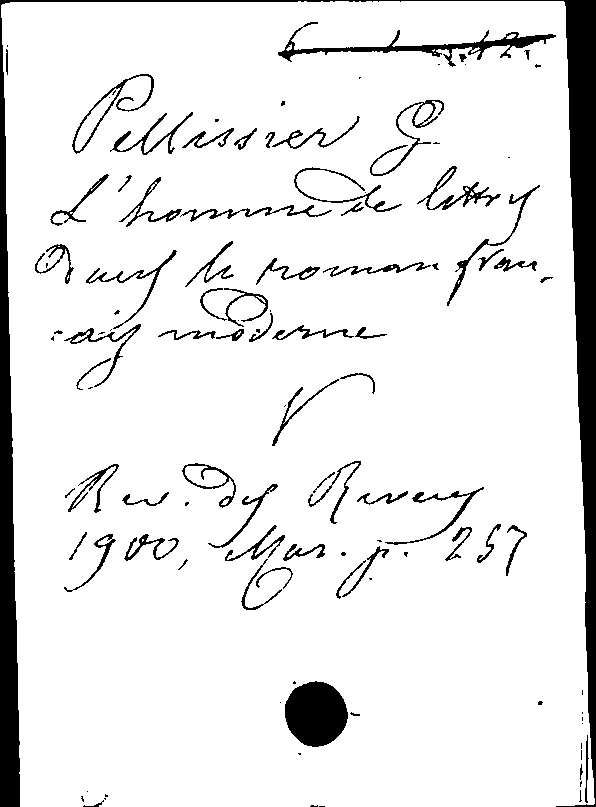 Pellissier G
L'homme de lettres
dans le roman fran-
-çais moderne
V
Rev. des Revues
1900, Mar. p. 257